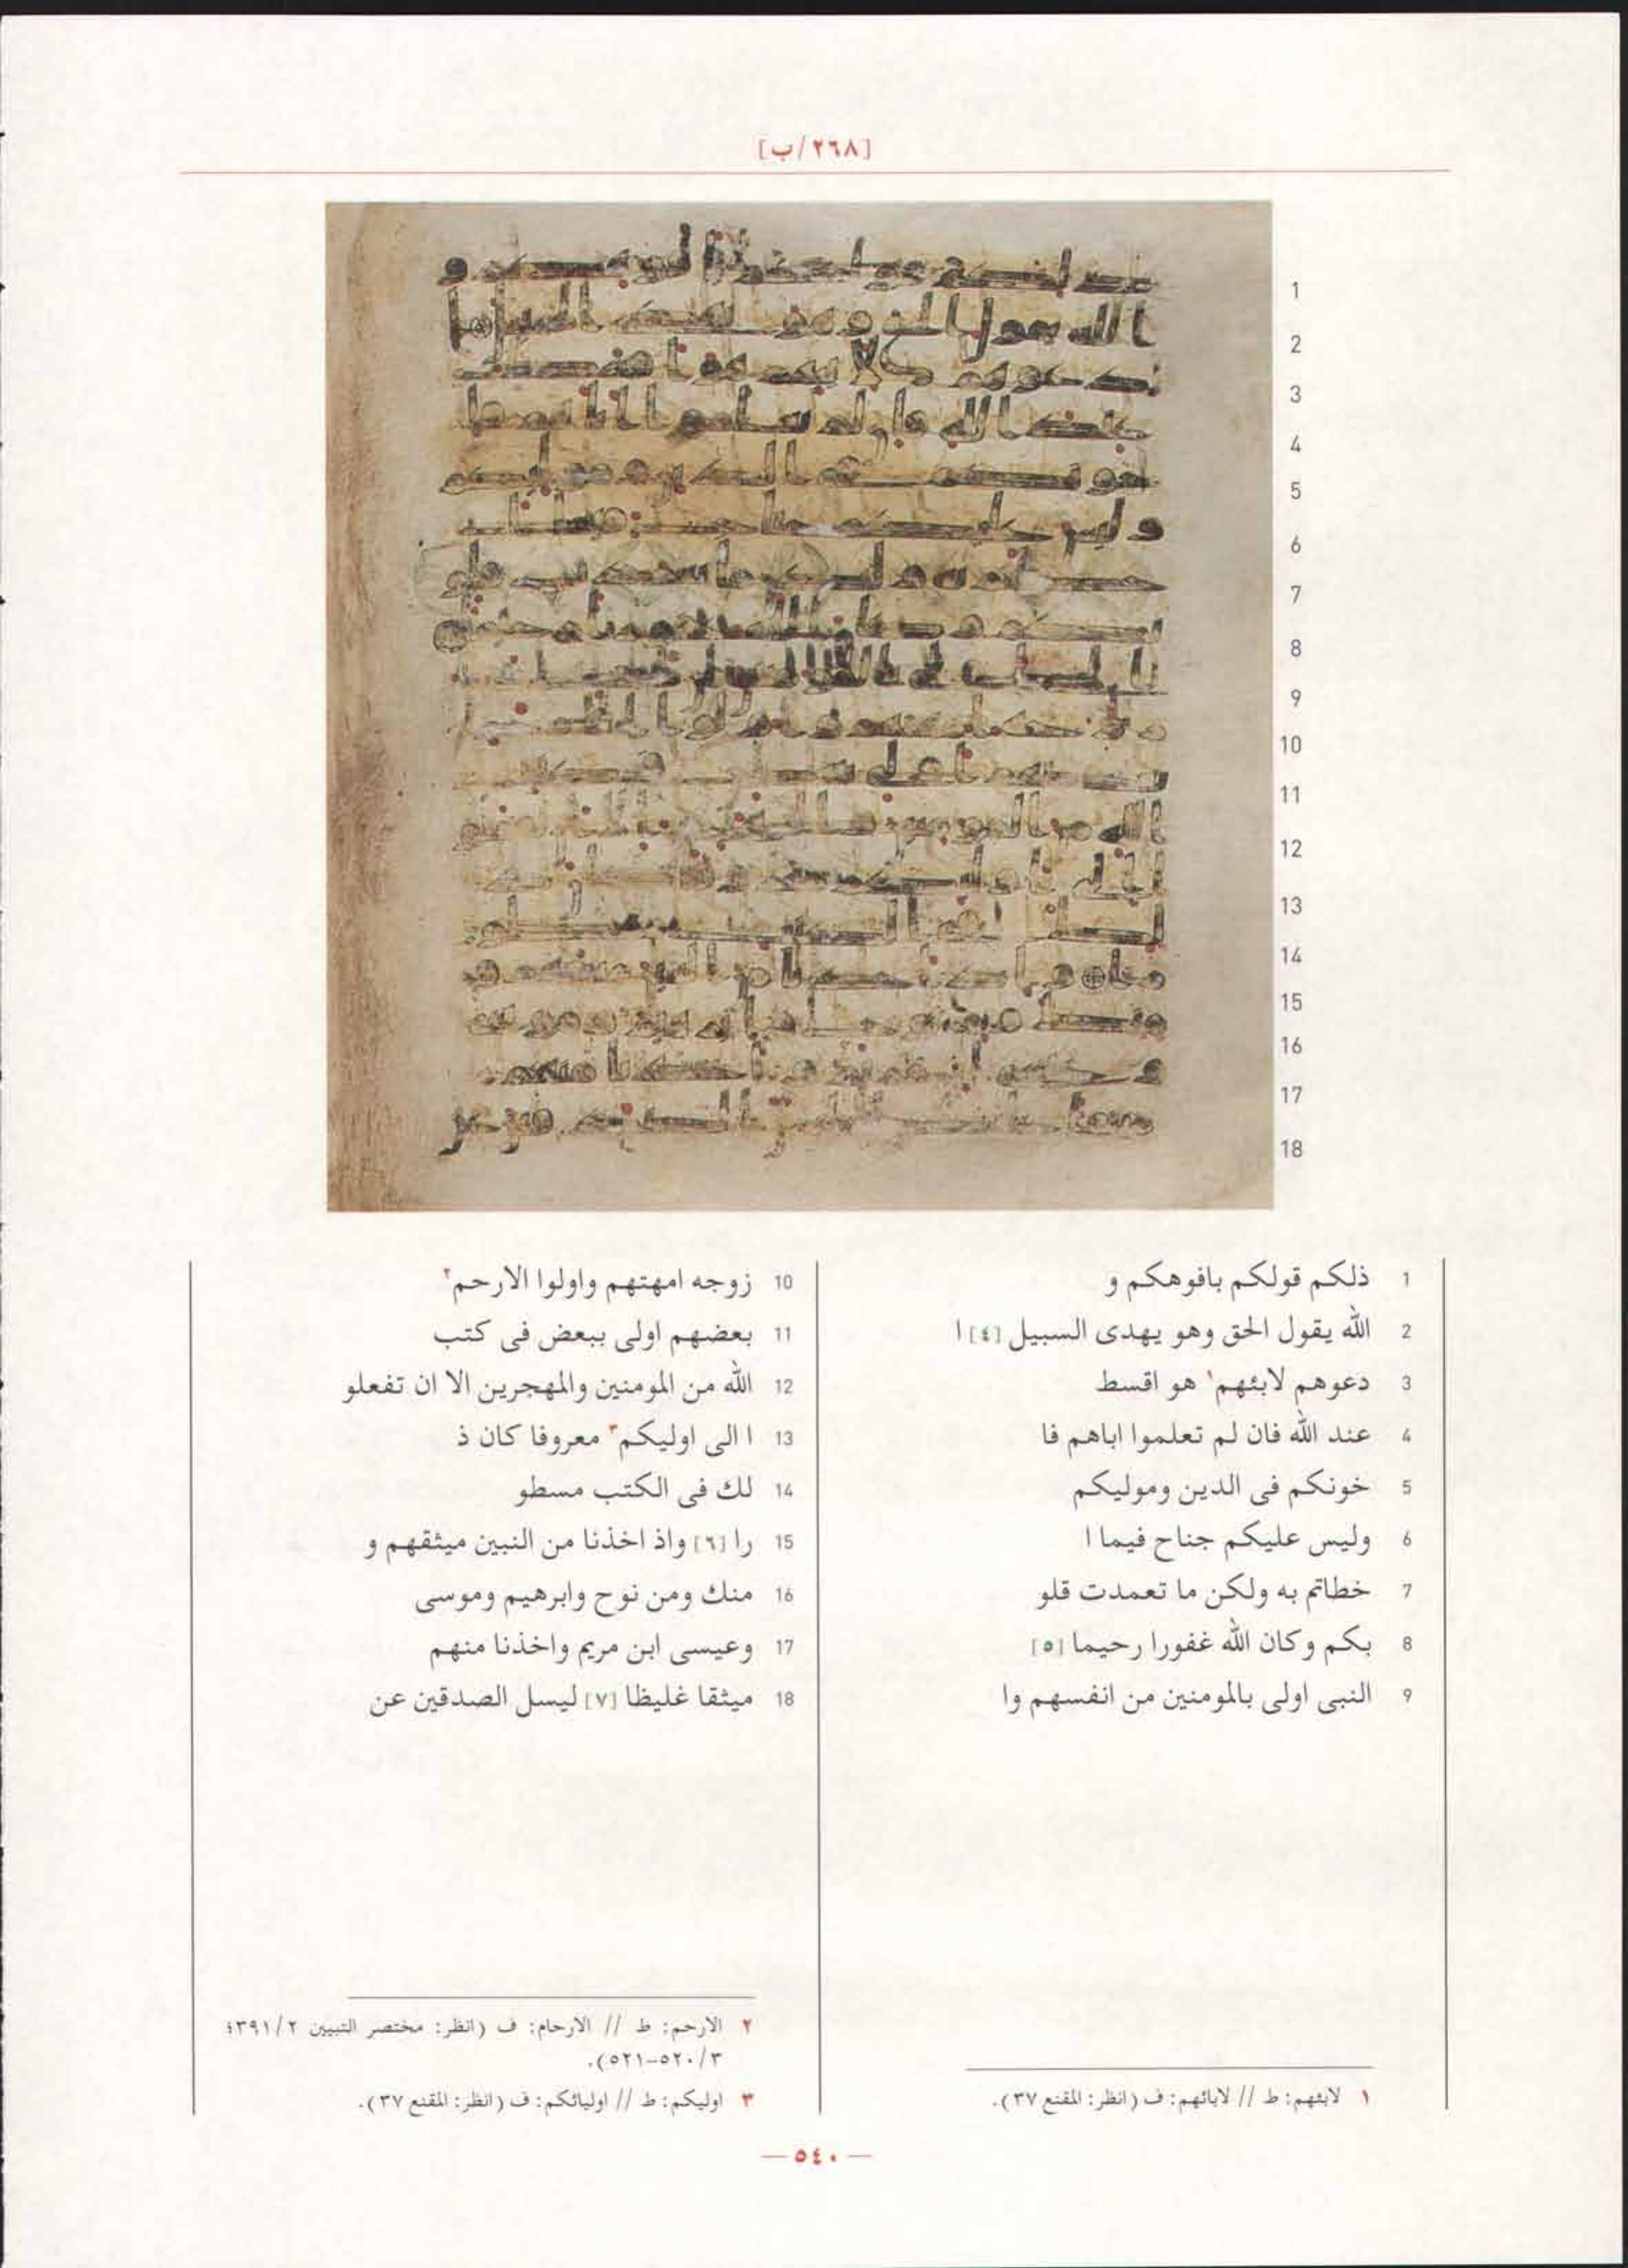 [٢٦٨/ب]
1
2
3
4
5
6
7
8
9
10
11
12
13
14
15
16
17
18
1 ذلكم قولكم بافوهكم و
2 الله يقول الحق وهو يهدى السبيل [٤] ا
3 دعوهم لابئهم١ هو اقسط
4 عند الله فان لم تعلموا اباهم فا
5 خونكم فى الدين وموليكم
6 وليس عليكم جناح فيما ا
7 خطاتم به ولكن ما تعمدت قلو
8 بكم وكان الله غفورا رحيما [٥]
9 النبى اولى بالمومنين من انفسهم وا
10 زوجه امهتهم واولوا الارحم٢
11 بعضهم اولى ببعض فى كتب
12 الله من المومنين والمهجرين الا ان تفعلو
13 ا الى اوليكم٣ معروفا كان ذ
14 لك فى الكتب مسطو
15 را [٦] واذ اخذنا من النبين ميثقهم و
16 منك ومن نوح وابرهيم وموسى
17 وعيسى ابن مريم واخذنا منهم
18 ميثقا غليظا [٧] ليسل الصدقين عن
١ لابئهم: ط // لابائهم: ف (انظر: المقنع ٣٧).
٢ الارحم: ط // الارحام: ف (انظر: مختصر التبيين ٣٩١/٢؛
٥٢٠/٣-٥٢١).
٣ اوليكم: ط // اوليائكم: ف (انظر: المقنع ٣٧).
— ٥٤٠ —